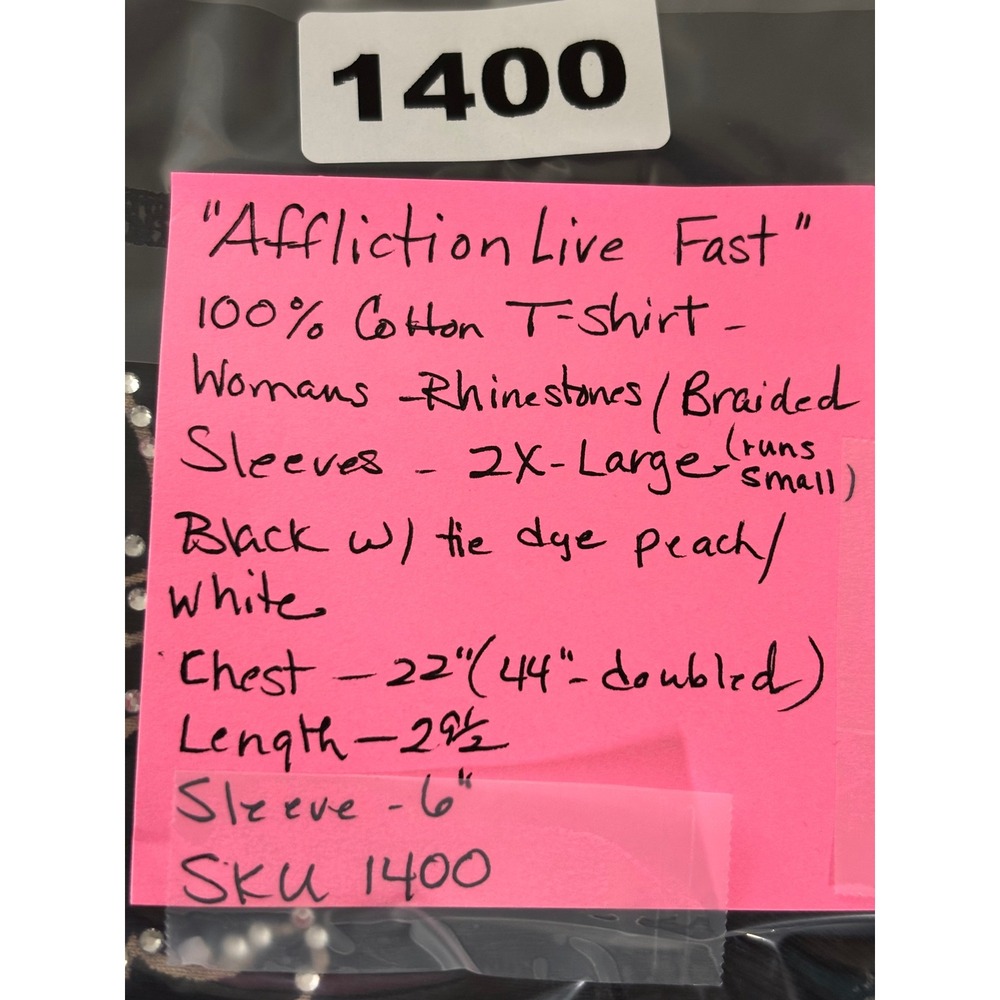 1400
"Affliction Live Fast"
100% Cotton T-Shirt -
Womans - Rhinestones / Braided
Sleeves - 2X-Large (runs
small)
Black w/ tie dye peach/
white
Chest - 22" (44" - doubled)
Length - 29 1/2
Sleeve - 6"
SKU 1400